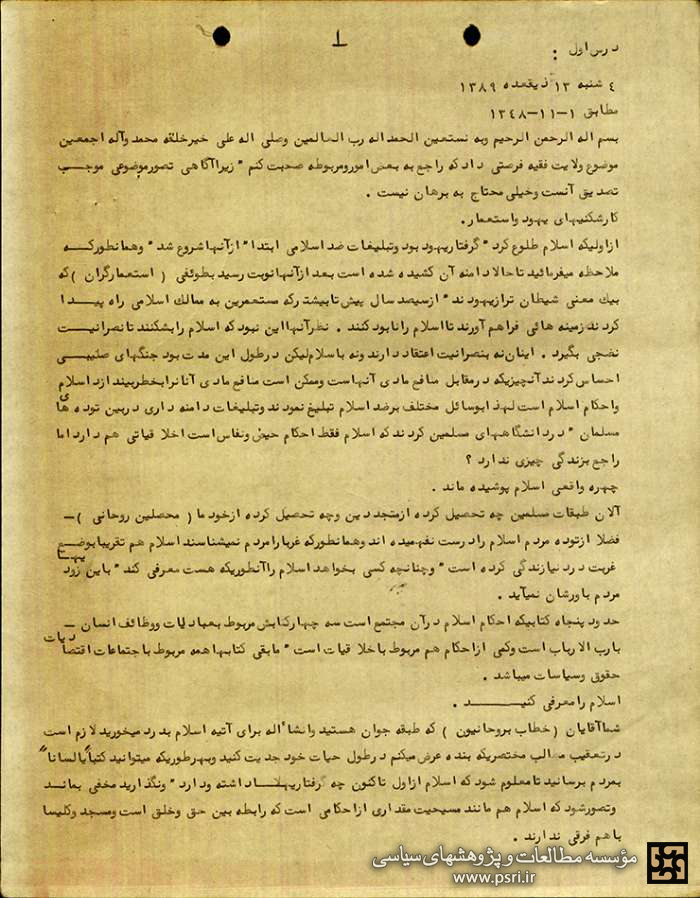 ١
درس اول :
٤ شنبه ١٣ ذیقعده ١٣٨٩
مطابق ١-١١-١٣٤٨
بسم اله الرحمن الرحیم وبه نستعین الحمداله رب العالمین وصلی اله علی خیرخلقه محمد وآله اجمعین
موضوع ولایت فقیه فرصتی داد که راجع به بعض امورومربوطه صحبت کنم " زیراآگاهی تصورموضوعی موجب
تصدیق آنست وخیلی محتاج به برهان نیست .
کارشکنیهای یهود واستعمار.
ازاولیکه اسلام طلوع کرد " گرفتاریهود بود وتبلیغات ضد اسلامی ابتدا " ازآنهاشروع شد " وهمانطورکه
ملاحظه میفرمائید تاحالا دامنه آن کشیده شده است بعد ازآنهانوبت رسید بطوئفی ( استعمارگران ) که
بیک معنی شیطان ترازیهودند " ازسیصد سال پیش تابیشترکه مستعمرین به ممالک اسلامی راه پیدا
کردند زمینه هائی فراهم آورند تااسلام رانابود کنند . نظرآنهااین نبود که اسلام رابشکنند تانصرانیت
نضجی بگیرد . اینان نه بنصرانیت اعتقاد دارند ونه باسلام لیکن درطول این مدت بود جنگهای صلیبی
احساس کردند آنچیزیکه درمقابل منافع مادی آنهاست وممکن است منافع مادی آنانرابخطربیندازد اسلام
واحکام اسلام است لهذا بوسائل مختلف برضد اسلام تبلیغ نمودند وتبلیغات دامنه داری دربین توده های
مسلمان " دردانشگاههای مسلمین کردند که اسلام فقط احکام حیض ونفاس است اخلاقیاتی هم دارد اما
راجع بزندگی چیزی ندارد ؟
چهره واقعی اسلام پوشیده ماند .
آلان طبقات مسلمین چه تحصیل کرده ازمتجددین وچه تحصیل کرده ازخودما ( محصلین روحانی ) -
فضلا ازتوده مردم اسلام رادرست نفهمیده اند وهمانطورکه غربارامردم نمیشناسند اسلام هم تقریبابوضع
غربت دردنیازندگی کرده است " وچنانچه کسی بخواهد اسلام راآنطوریکه هست معرفی کند " باین زودیها
مردم باورشان نمیآید .
حدود پنجاه کتابیکه احکام اسلام درآن مجتمع است سه چهارکتابش مربوط بعبادیات ووظائف انسان -
بارب الارباب است وکمی ازاحکام هم مربوط باخلاقیات است " مابقی کتابهاهمه مربوط باجتماعات اقتصادیات
حقوق وسیاسات میباشد .
اسلام رامعرفی کنیــــد .
شماآقایان ( خطاب بروحانیون ) که طبقه جوان هستید وانشاأله برای آتیه اسلام بدرد میخورید لازم است
درتعقیب مطالب مختصریکه بنده عرض میکنم درطول حیات خود جدیت کنید وبهرطوریکه میتوانید کتباً یالساناً
بمردم برسانید تامعلوم شود که اسلام ازاول تاکنون چه گرفتاریهـــا داشته ودارد " ونگذارید مخفی بماند
وتصورشود که اسلام هم مانند مسیحیت مقداری ازاحکامی است که رابطه بین حق وخلق است ومسجد وکلیسا
باهم فرقی ندارند .
مؤسسه مطالعات و پژوهشهای سیاسی
www.psri.ir